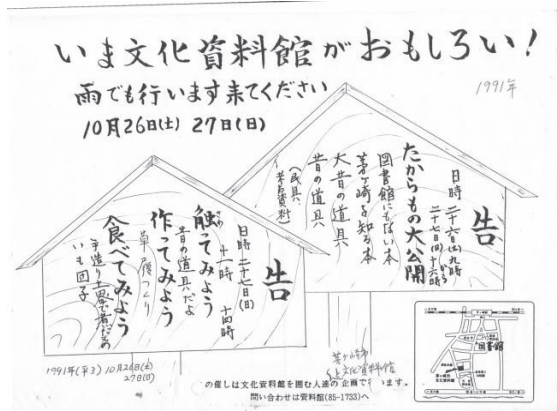 いま文化資料館がおもしろい!
1991年
雨でも行います来てください
10月26日(土) 27日(日)
告
日時 二十六日(土)九時から
二十七日(日)十六時
たからもの大公開
図書館にもない本
茅ヶ崎を知る本
大昔の道具
昔の道具
(民具、考古資料)
告
日時 二十七日(日)
十一時 十四時
触ってみよう
昔の道具だよ
作ってみよう
草履つくり
食べてみよう
手造り土器で煮だもの
いも団子
1991年(平3)10月26日(土)
27日(日)
茅ヶ崎市
文化資料館
図書館
の催しは文化資料館を囲む人達の企画で います。
問い合わせは資料館(85-1733)へ